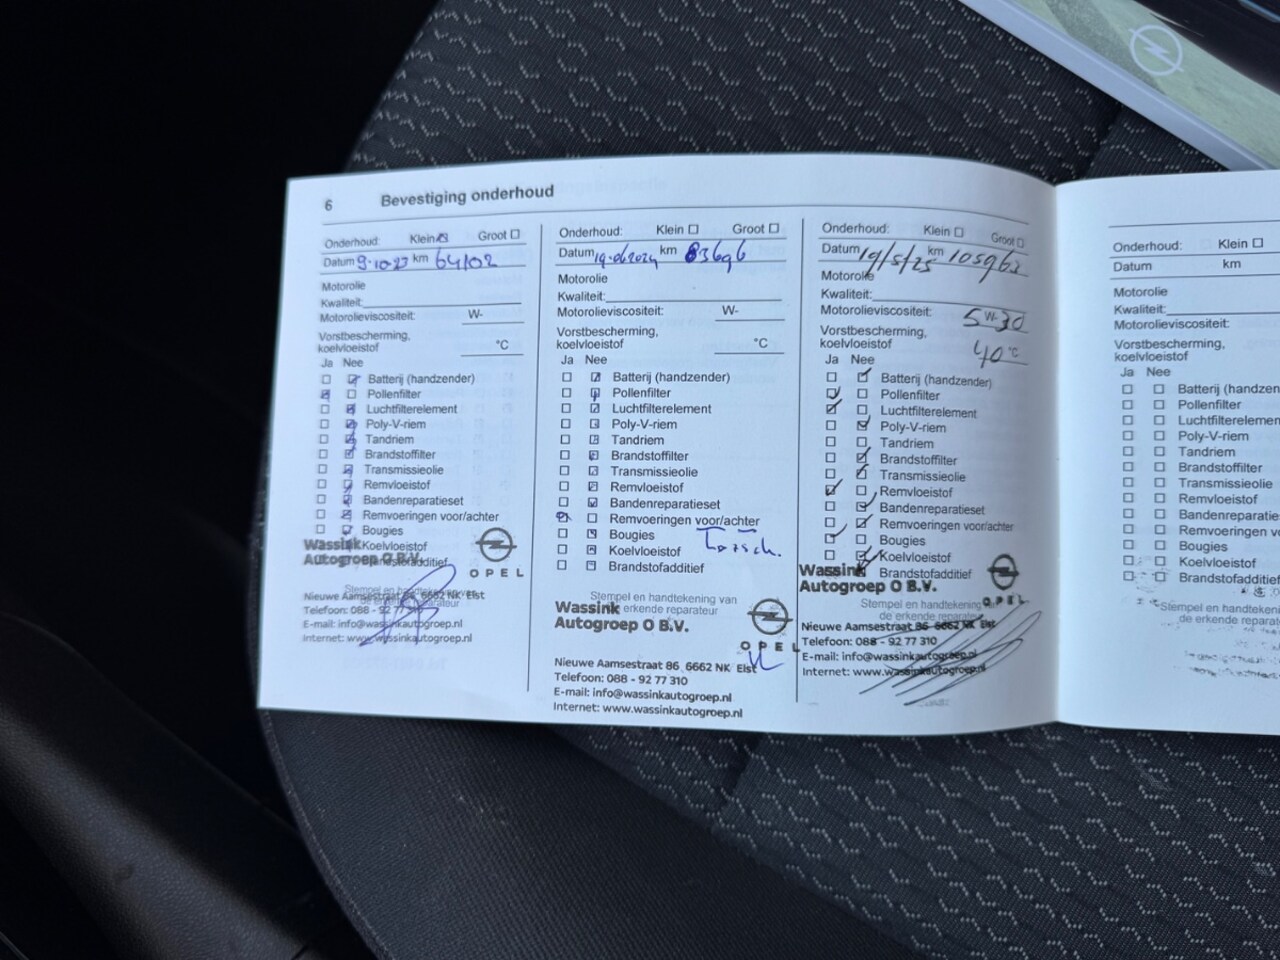 6 Bevestiging onderhoud
Onderhoud: Klein Groot
Datum 9-10-23 km 64102
Motorolie
Kwaliteit:
Motorolieviscositeit: W-
Vorstbescherming,
koelvloeistof °C
Ja Nee
Batterij (handzender)
Pollenfilter
Luchtfilterelement
Poly-V-riem
Tandriem
Brandstoffilter
Transmissieolie
Remvloeistof
Bandenreparatieset
Remvoeringen voor/achter
Bougies
Koelvloeistof
Brandstofadditief
Wassink
Autogroep O B.V.
OPEL
Nieuwe Aamsestraat 86 6662 NK Elst
Telefoon: 088 - 92 77 310
E-mail: info@wassinkautogroep.nl
Internet: www.wassinkautogroep.nl
Onderhoud: Klein Groot
Datum 19-06-2024 km 83696
Motorolie
Kwaliteit:
Motorolieviscositeit: W-
Vorstbescherming,
koelvloeistof °C
Ja Nee
Batterij (handzender)
Pollenfilter
Luchtfilterelement
Poly-V-riem
Tandriem
Brandstoffilter
Transmissieolie
Remvloeistof
Bandenreparatieset
Remvoeringen voor/achter
Bougies
Koelvloeistof
Brandstofadditief
Stempel en handtekening van
de erkende reparateur
Wassink
Autogroep O B.V.
OPEL
Nieuwe Aamsestraat 86 6662 NK Elst
Telefoon: 088 - 92 77 310
E-mail: info@wassinkautogroep.nl
Internet: www.wassinkautogroep.nl
Onderhoud: Klein Groot
Datum 19/5/25 km 105963
Motorolie
Kwaliteit:
Motorolieviscositeit: 5 W- 30
Vorstbescherming,
koelvloeistof 40 °C
Ja Nee
Batterij (handzender)
Pollenfilter
Luchtfilterelement
Poly-V-riem
Tandriem
Brandstoffilter
Transmissieolie
Remvloeistof
Bandenreparatieset
Remvoeringen voor/achter
Bougies
Koelvloeistof
Brandstofadditief
Stempel en handtekening van
de erkende reparateur
Wassink
Autogroep O B.V.
OPEL
Nieuwe Aamsestraat 86 6662 NK Elst
Telefoon: 088 - 92 77 310
E-mail: info@wassinkautogroep.nl
Internet: www.wassinkautogroep.nl
Onderhoud: Klein
Datum km
Motorolie
Kwaliteit:
Motorolieviscositeit:
Vorstbescherming,
koelvloeistof
Ja Nee
Batterij (handzen
Pollenfilter
Luchtfilterelement
Poly-V-riem
Tandriem
Brandstoffilter
Transmissieolie
Remvloeistof
Bandenreparatie
Remvoeringen vo
Bougies
Koelvloeistof
Brandstofadditief
Stempel en handteken
de erkende repara